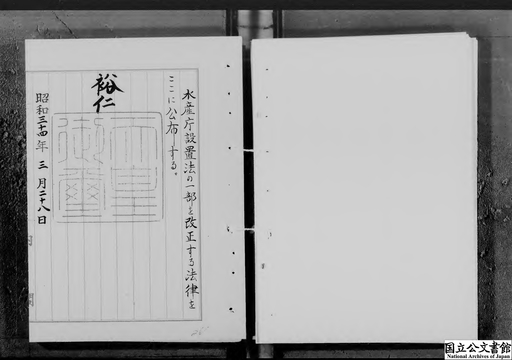 水産庁設置法の一部を改正する法律を
ここに公布する。
裕仁
天皇
御璽
昭和三十四年三月二十八日
内閣
国立公文書館
National Archives of Japan